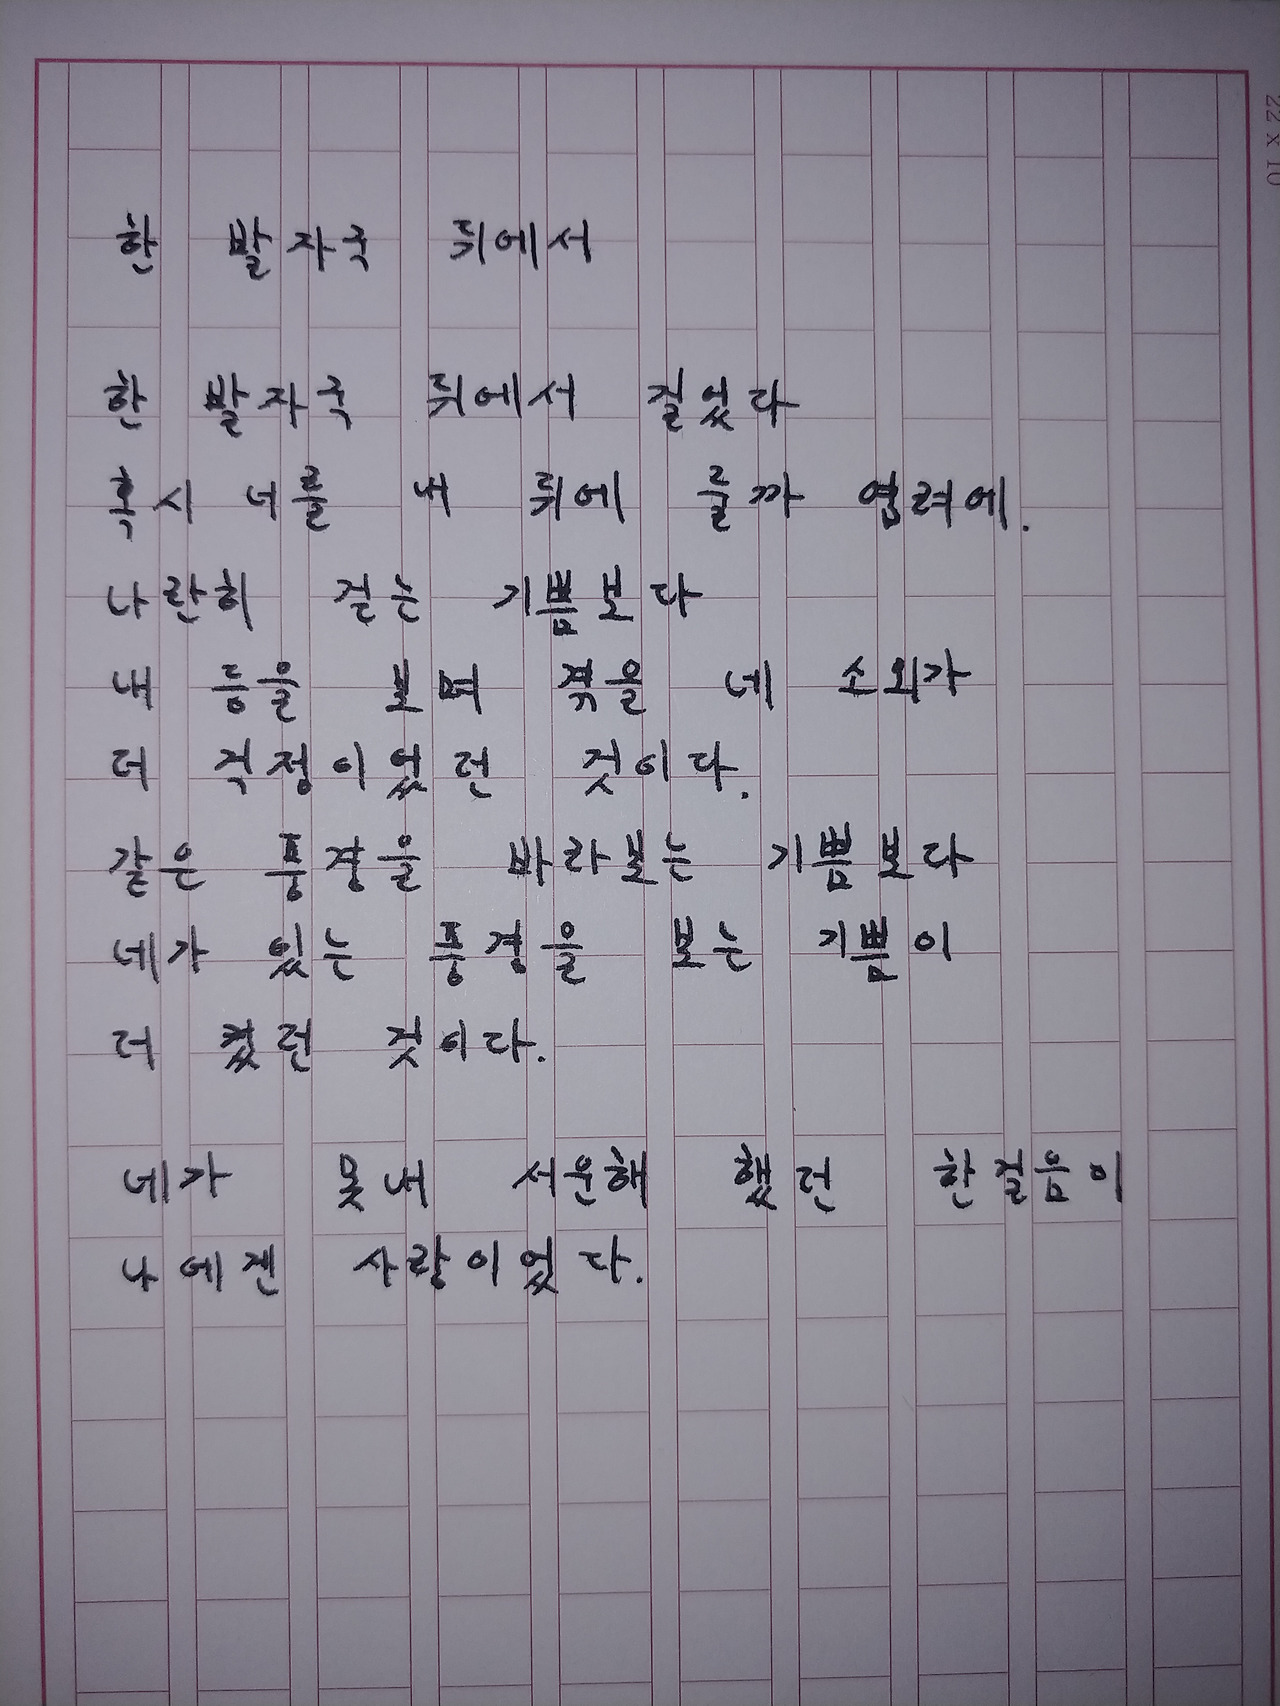 한 발자국 뒤에서
한 발자국 뒤에서 걸었다
혹시 너를 내 뒤에 둘까 염려에.
나란히 걷는 기쁨보다
내 등을 보며 겪을 네 소외가
더 걱정이었던 것이다.
같은 풍경을 바라보는 기쁨보다
네가 있는 풍경을 보는 기쁨이
더 컸던 것이다.
네가 못내 서운해 했던 한걸음이
나에겐 사랑이었다.
22 x 10